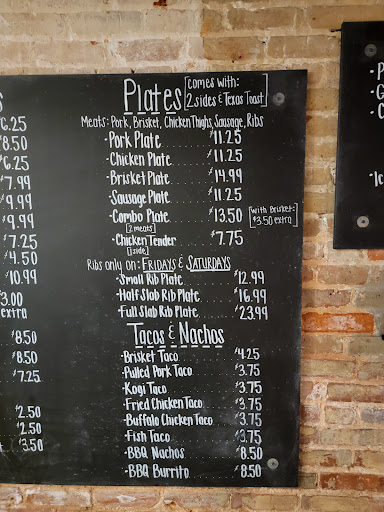 Plates [comes with: 2 sides & Texas Toast]
Meats: Pork, Brisket, Chicken Thighs, Sausage, Ribs
•Pork Plate..........$11.25
•Chicken Plate.......$11.25
•Brisket Plate.......$14.99
•Sausage Plate.......$11.25
•Combo Plate.........$13.50 [with Brisket: $3.50 extra]
[2 meats]
•Chicken Tender......$7.75
[1 side]
Ribs only on: FRIDAYS & SATURDAYS
•Small Rib Plate.....$12.99
•Half Slab Rib Plate....$16.99
•Full Slab Rib Plate....$23.99
Tacos & Nachos
•Brisket Taco........$4.25
•Pulled Pork Taco....$3.75
•Kogi Taco...........$3.75
•Fried Chicken Taco..$3.75
•Buffalo Chicken Taco..$3.75
•Fish Taco...........$3.75
•BBQ Nachos..........$8.50
•BBQ Burrito.........$8.50
s
$6.25
$8.50
$6.25
$7.99
$9.99
$9.99
$9.99
$7.25
$4.50
$10.99
$3.00
extra
$8.50
$8.50
$7.25
$2.50
$2.50
$3.50